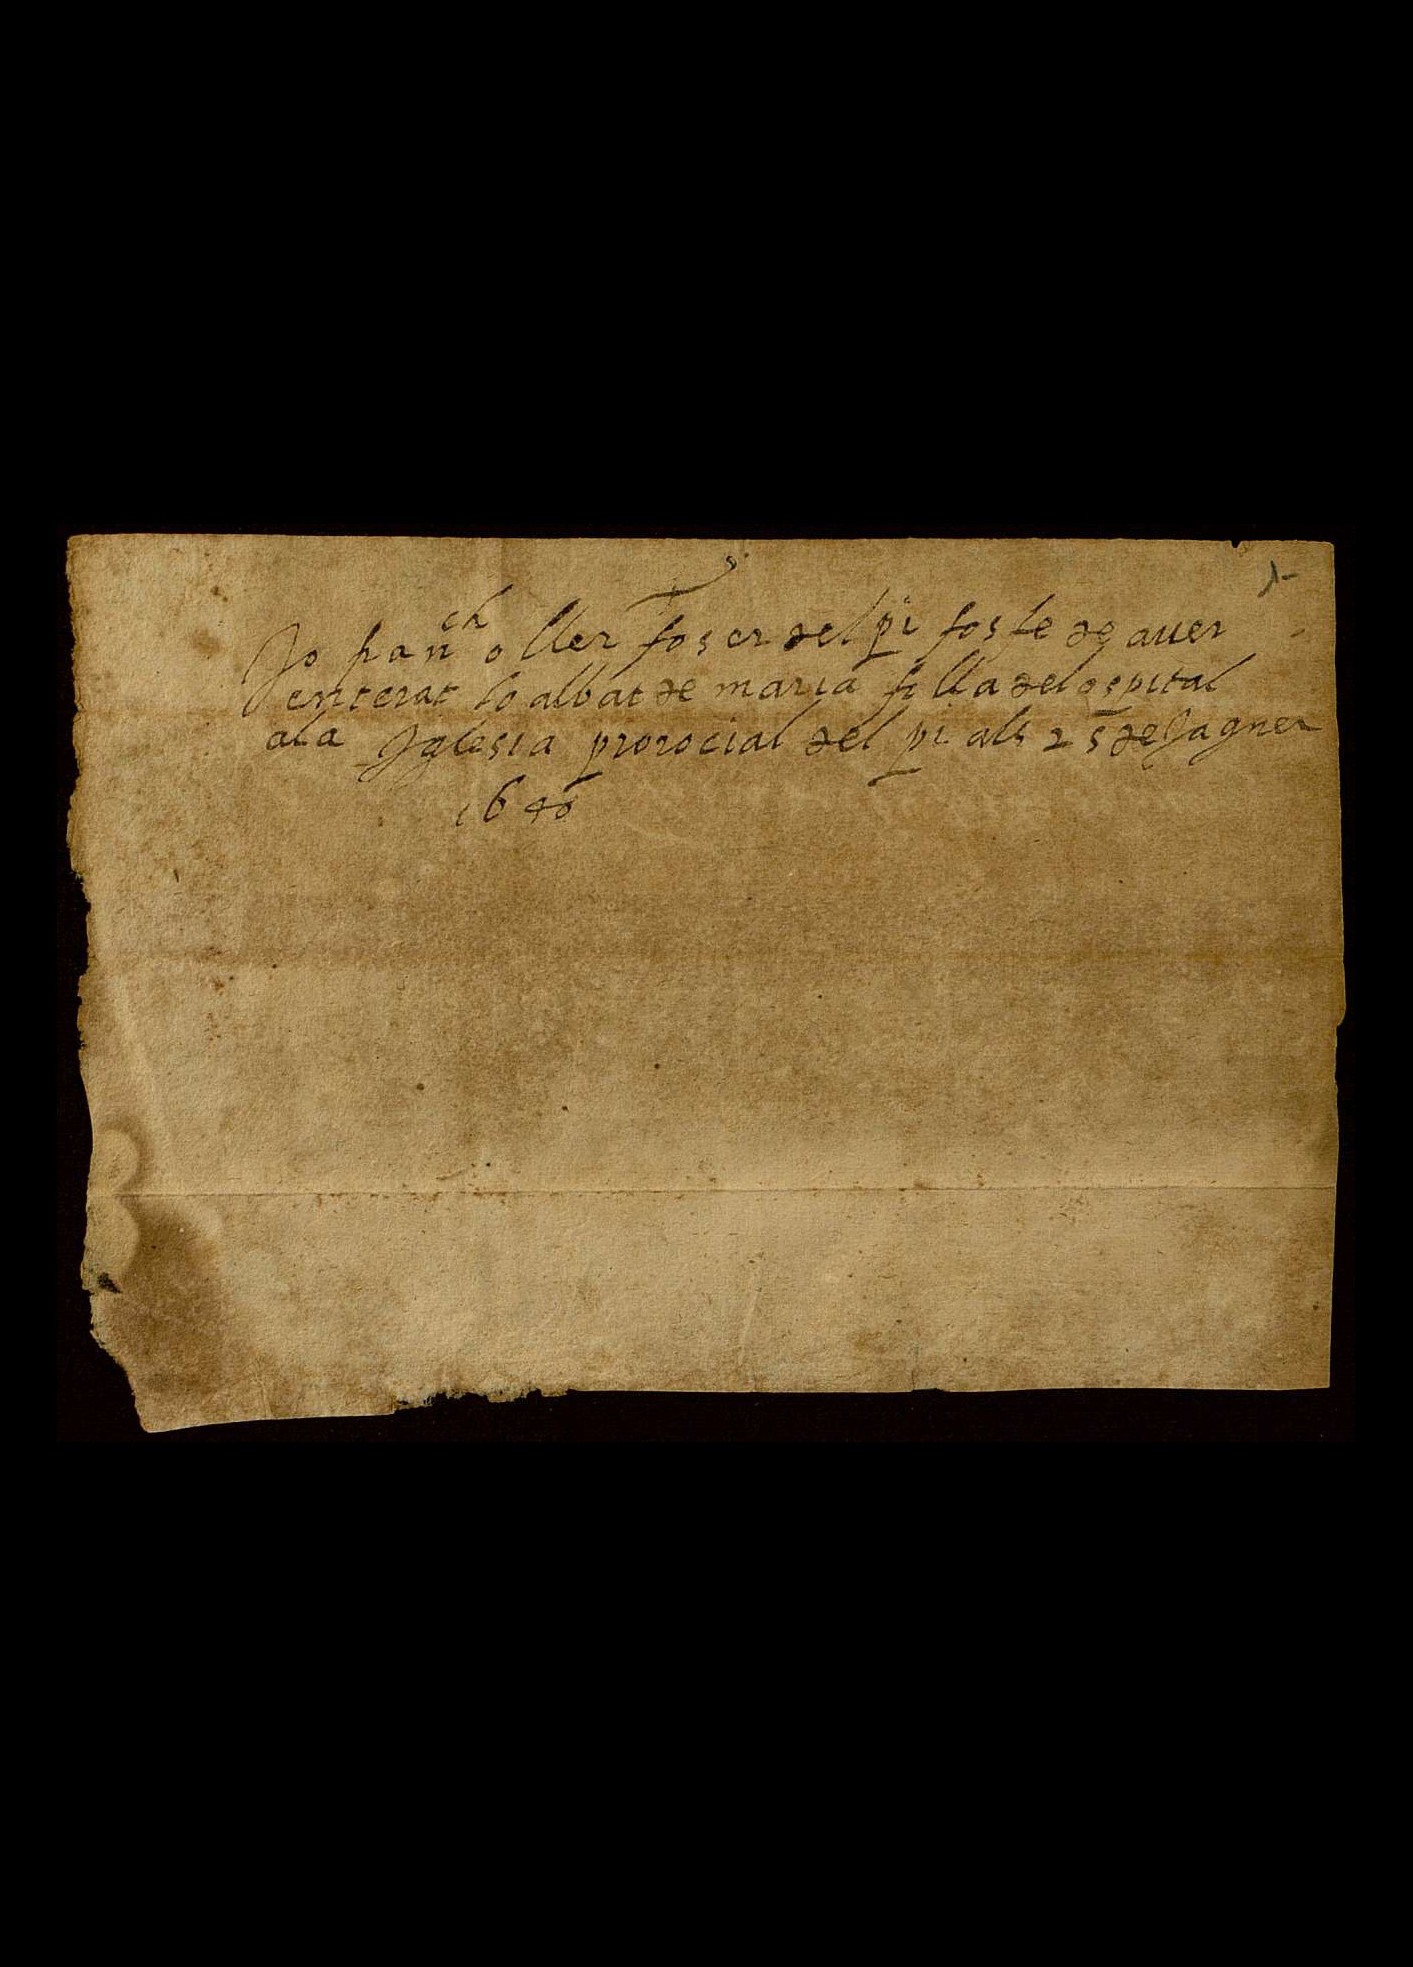 Jo fran^ch oller foser del pi fas fe de aver
enterat lo albat de maria filla del ospital
ala Iglesia prorocial del pi als 25 de Jagner
1640